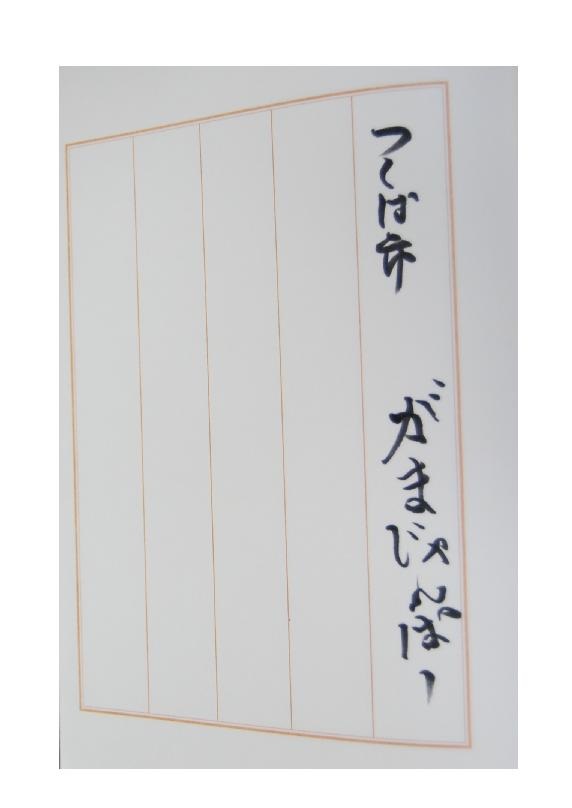 つくば市 がまじゃんぱー